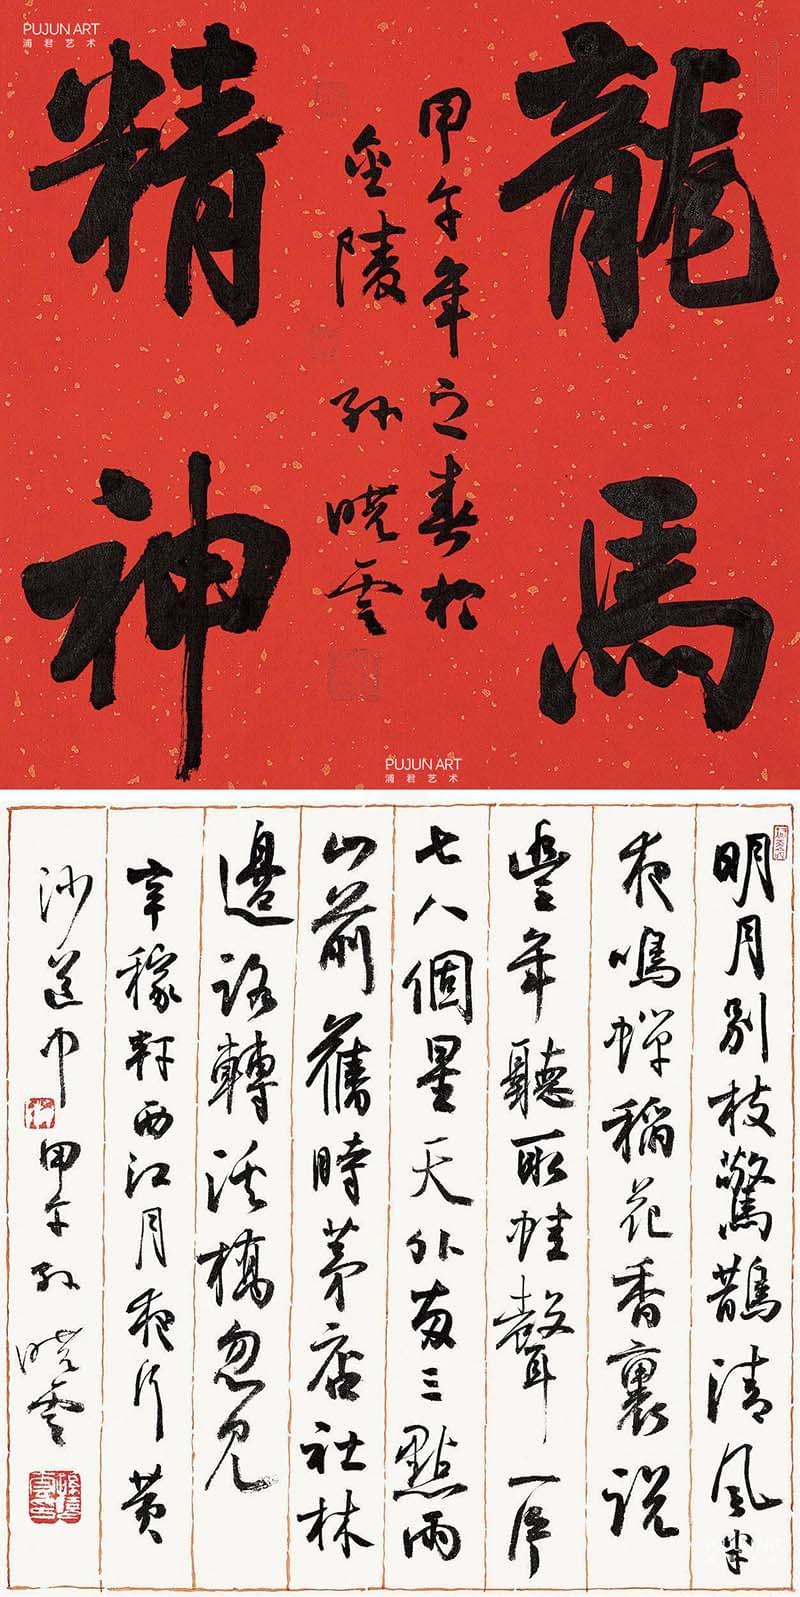 PUJUN ART
浦君艺术
PUJUN ART
浦君艺术
龍馬
甲午年之春於
金陵 孫曉雲
精神
PUJUN ART
浦君艺术
明月別枝驚鵲清風半
夜鳴蟬稻花香裏說
豐年聽取蛙聲一片
七八個星天外兩三點雨
山前舊時茅店社林
邊路轉溪橋忽見
辛稼軒西江月夜行黃
沙道中 甲午孫曉雲
PUJUN ART